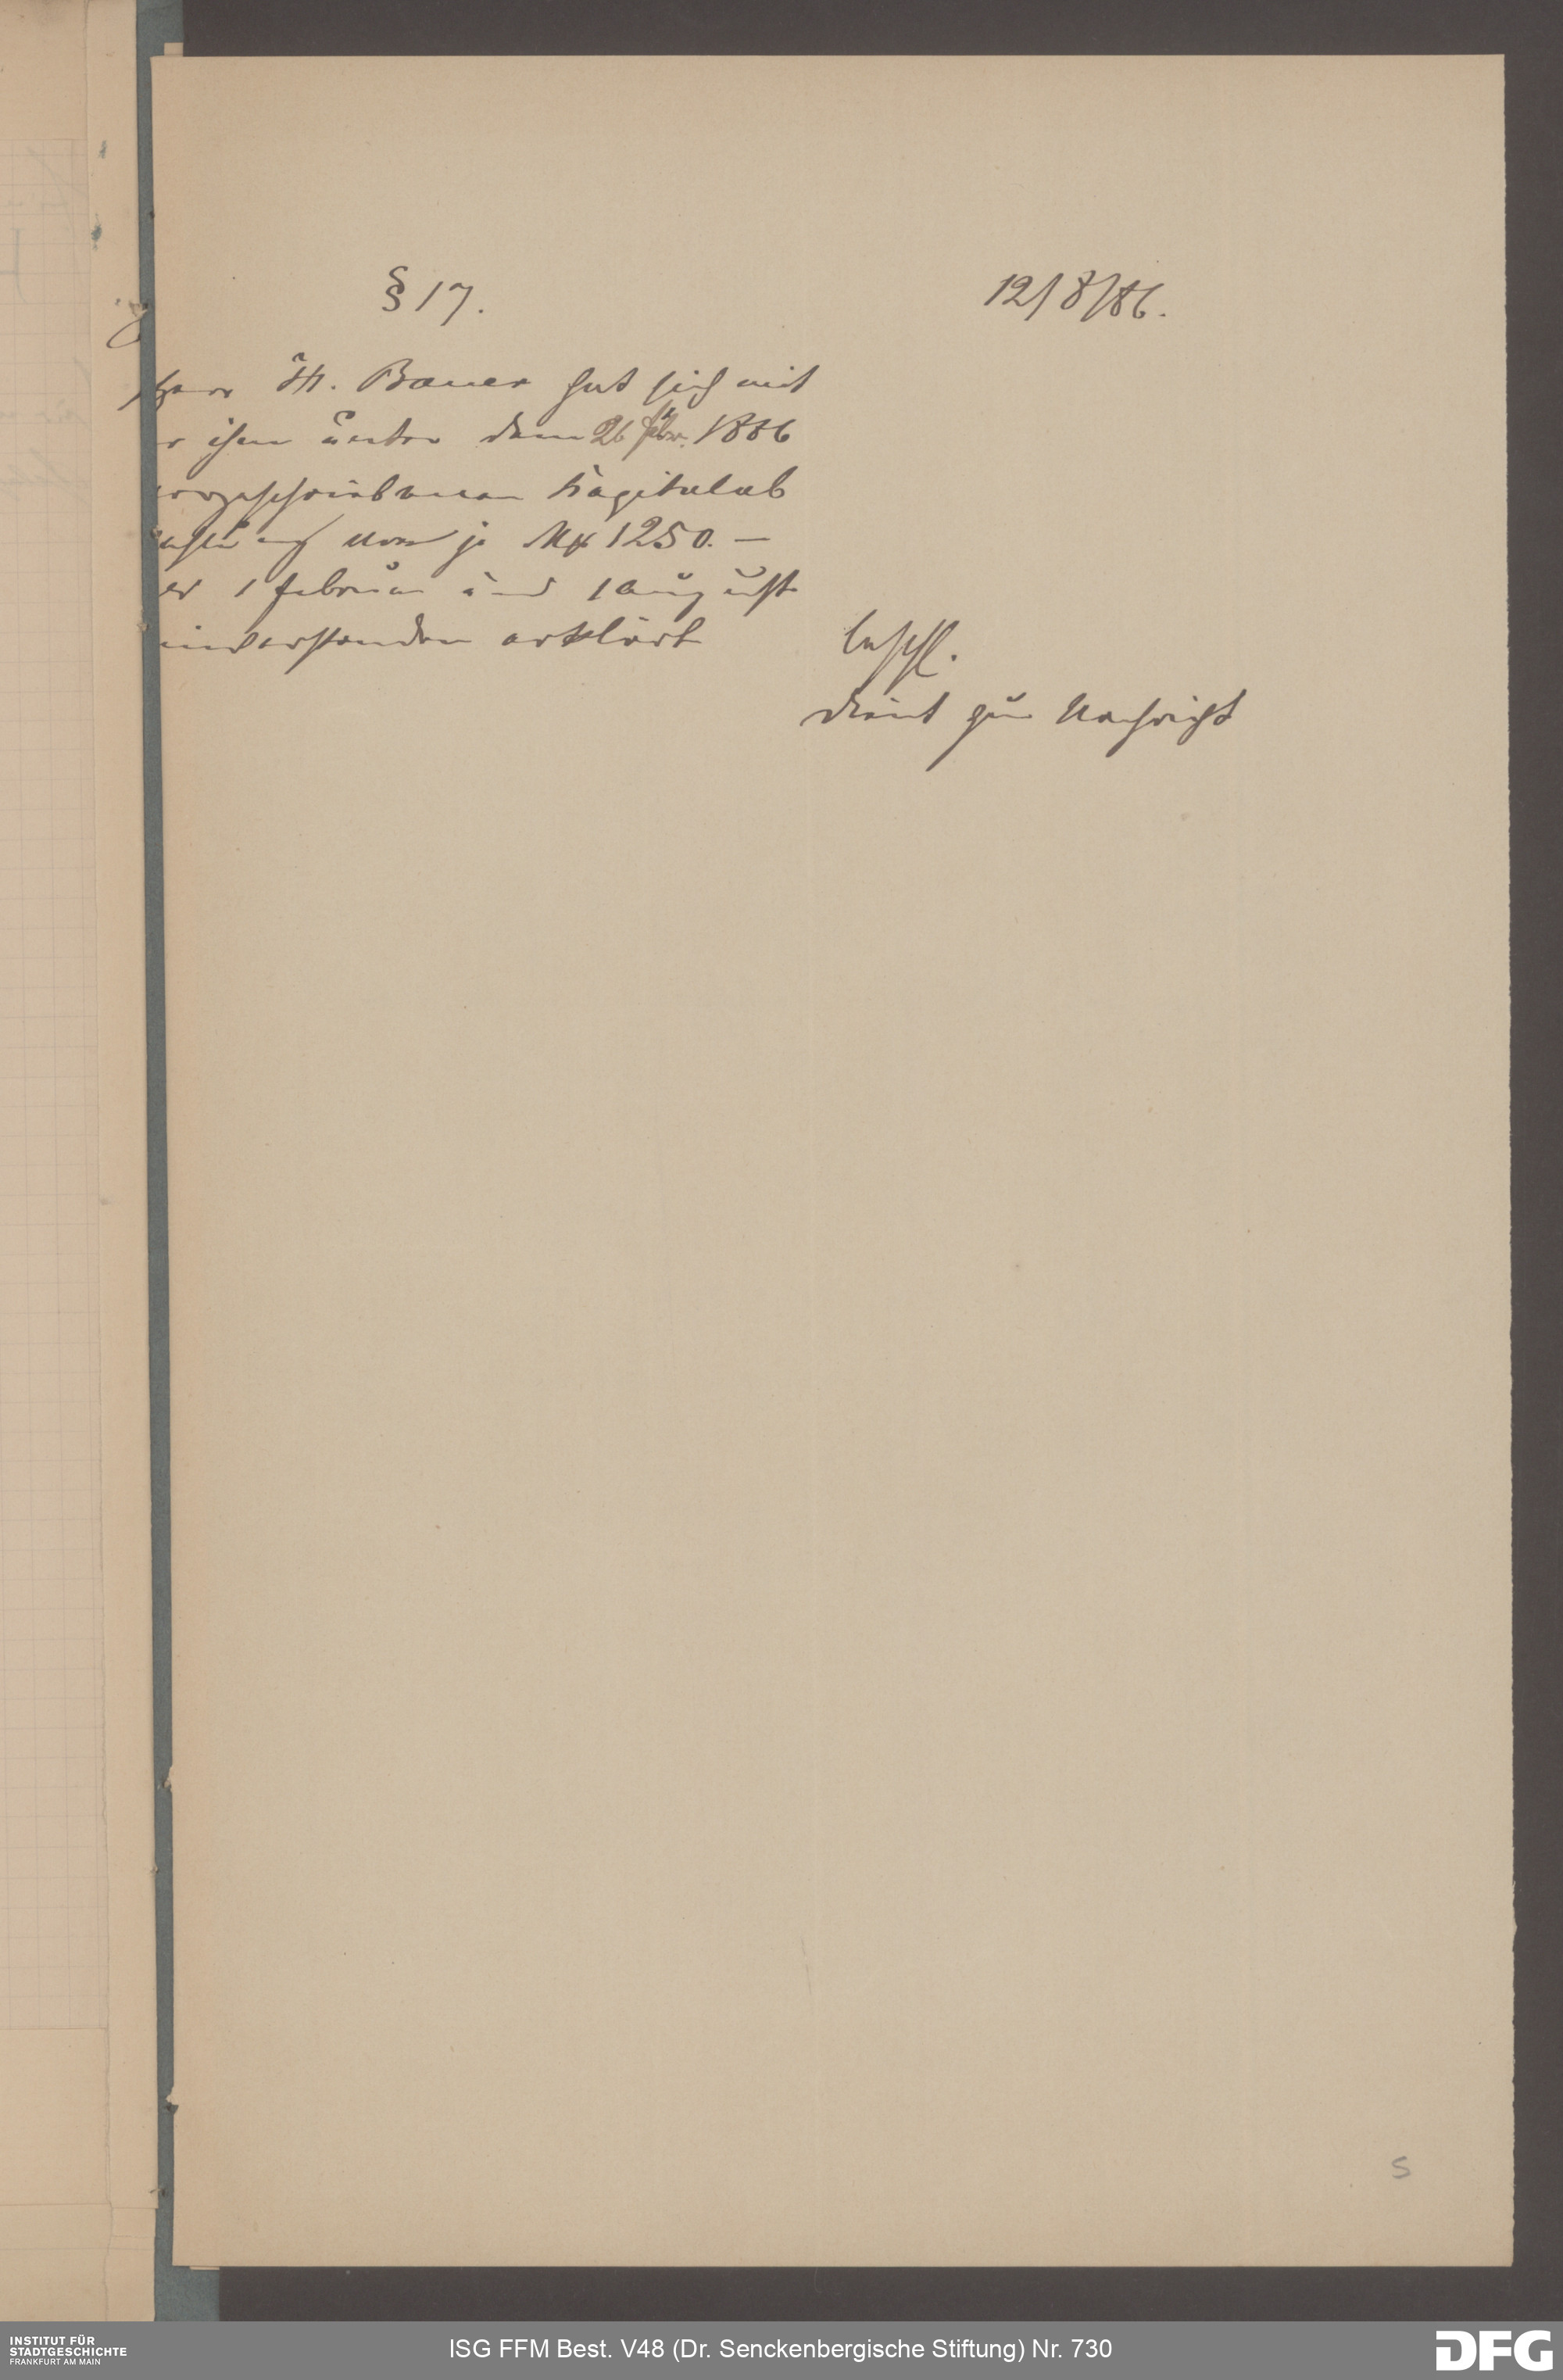 § 17.
12/8/86.
Herr St. Bauer hat sich mit
r ihm unter dem 26 Febr. 1886
orgeschriebenen Kapitalab
zahlung von je Mk 1250. —
er 1 Februar und 1 August
inverstanden erklärt
beschl.
dient zur Nachricht
S
INSTITUT FÜR
STADTGESCHICHTE
FRANKFURT AM MAIN
ISG FFM Best. V48 (Dr. Senckenbergische Stiftung) Nr. 730
DFG